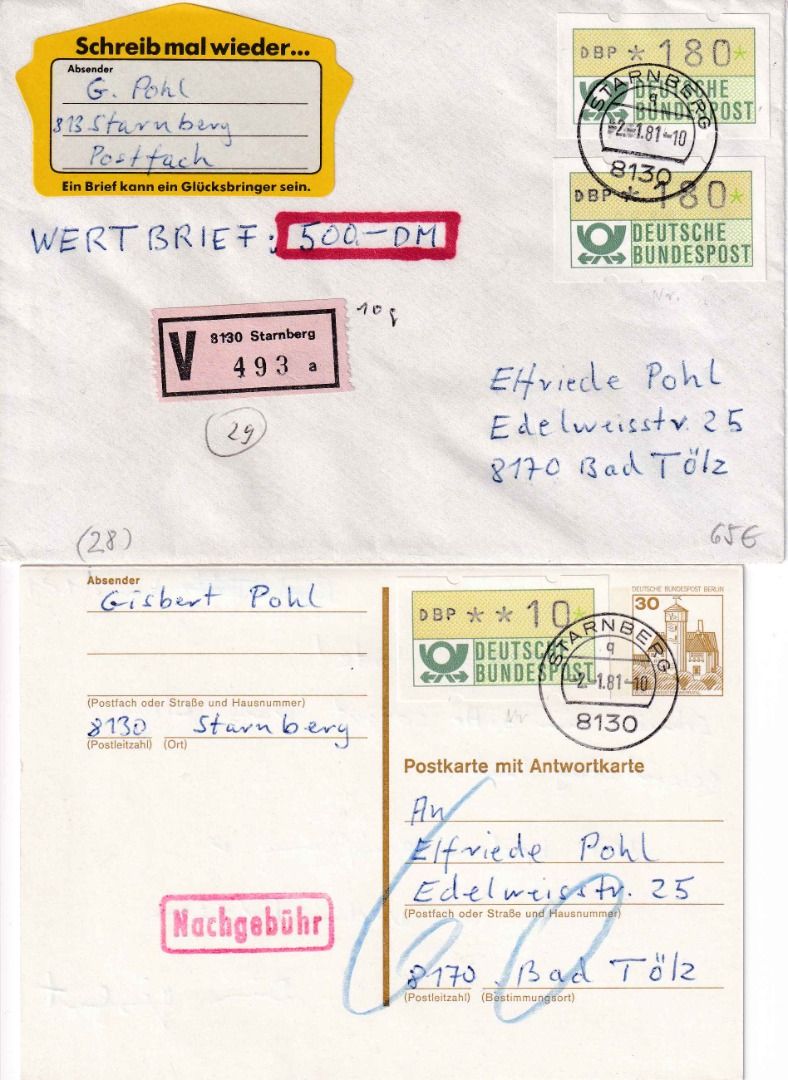 Schreib mal wieder...
Absender
G. Pohl
813 Starnberg
Postfach
Ein Brief kann ein Glücksbringer sein.
DBP * 180*
DEUTSCHE
BUNDESPOST
STARNBERG
q
-2.-1.81-10
8130
DBP * 180*
DEUTSCHE
BUNDESPOST
Nr.
WERTBRIEF: 500.-DM
10 g
V 8130 Starnberg
493 a
29
Elfriede Pohl
Edelweisstr. 25
8170 Bad Tölz
(28)
65€
Absender
Gisbert Pohl
(Postfach oder Straße und Hausnummer)
8130 Starnberg
(Postleitzahl) (Ort)
DBP * * 10*
DEUTSCHE
BUNDESPOST
Nr
DEUTSCHE BUNDESPOST BERLIN
30
STARNBERG
q
-2.-1.81-10
8130
Postkarte mit Antwortkarte
An
Elfriede Pohl
Edelweisstr. 25
(Postfach oder Straße und Hausnummer)
8170 Bad Tölz
(Postleitzahl) (Bestimmungsort)
60
Nachgebühr